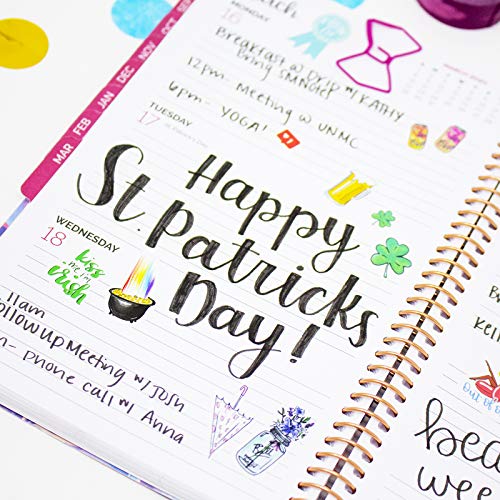 OCT
NOV
DEC
JAN
FEB
MAR
MONDAY
16
Breakfast @ DRIP w/ KATHY
Bring SMNotes!
12pm- Meeting w/ UNMC
6pm- YOGA!
TUESDAY
17 St. Patrick's Day
Happy
St. Patricks
Day!
WEDNESDAY
18
kiss
me I'm
irish
11am
Followup Meeting w/ Josh
phone call w/ Anna
Out of
bea
wee